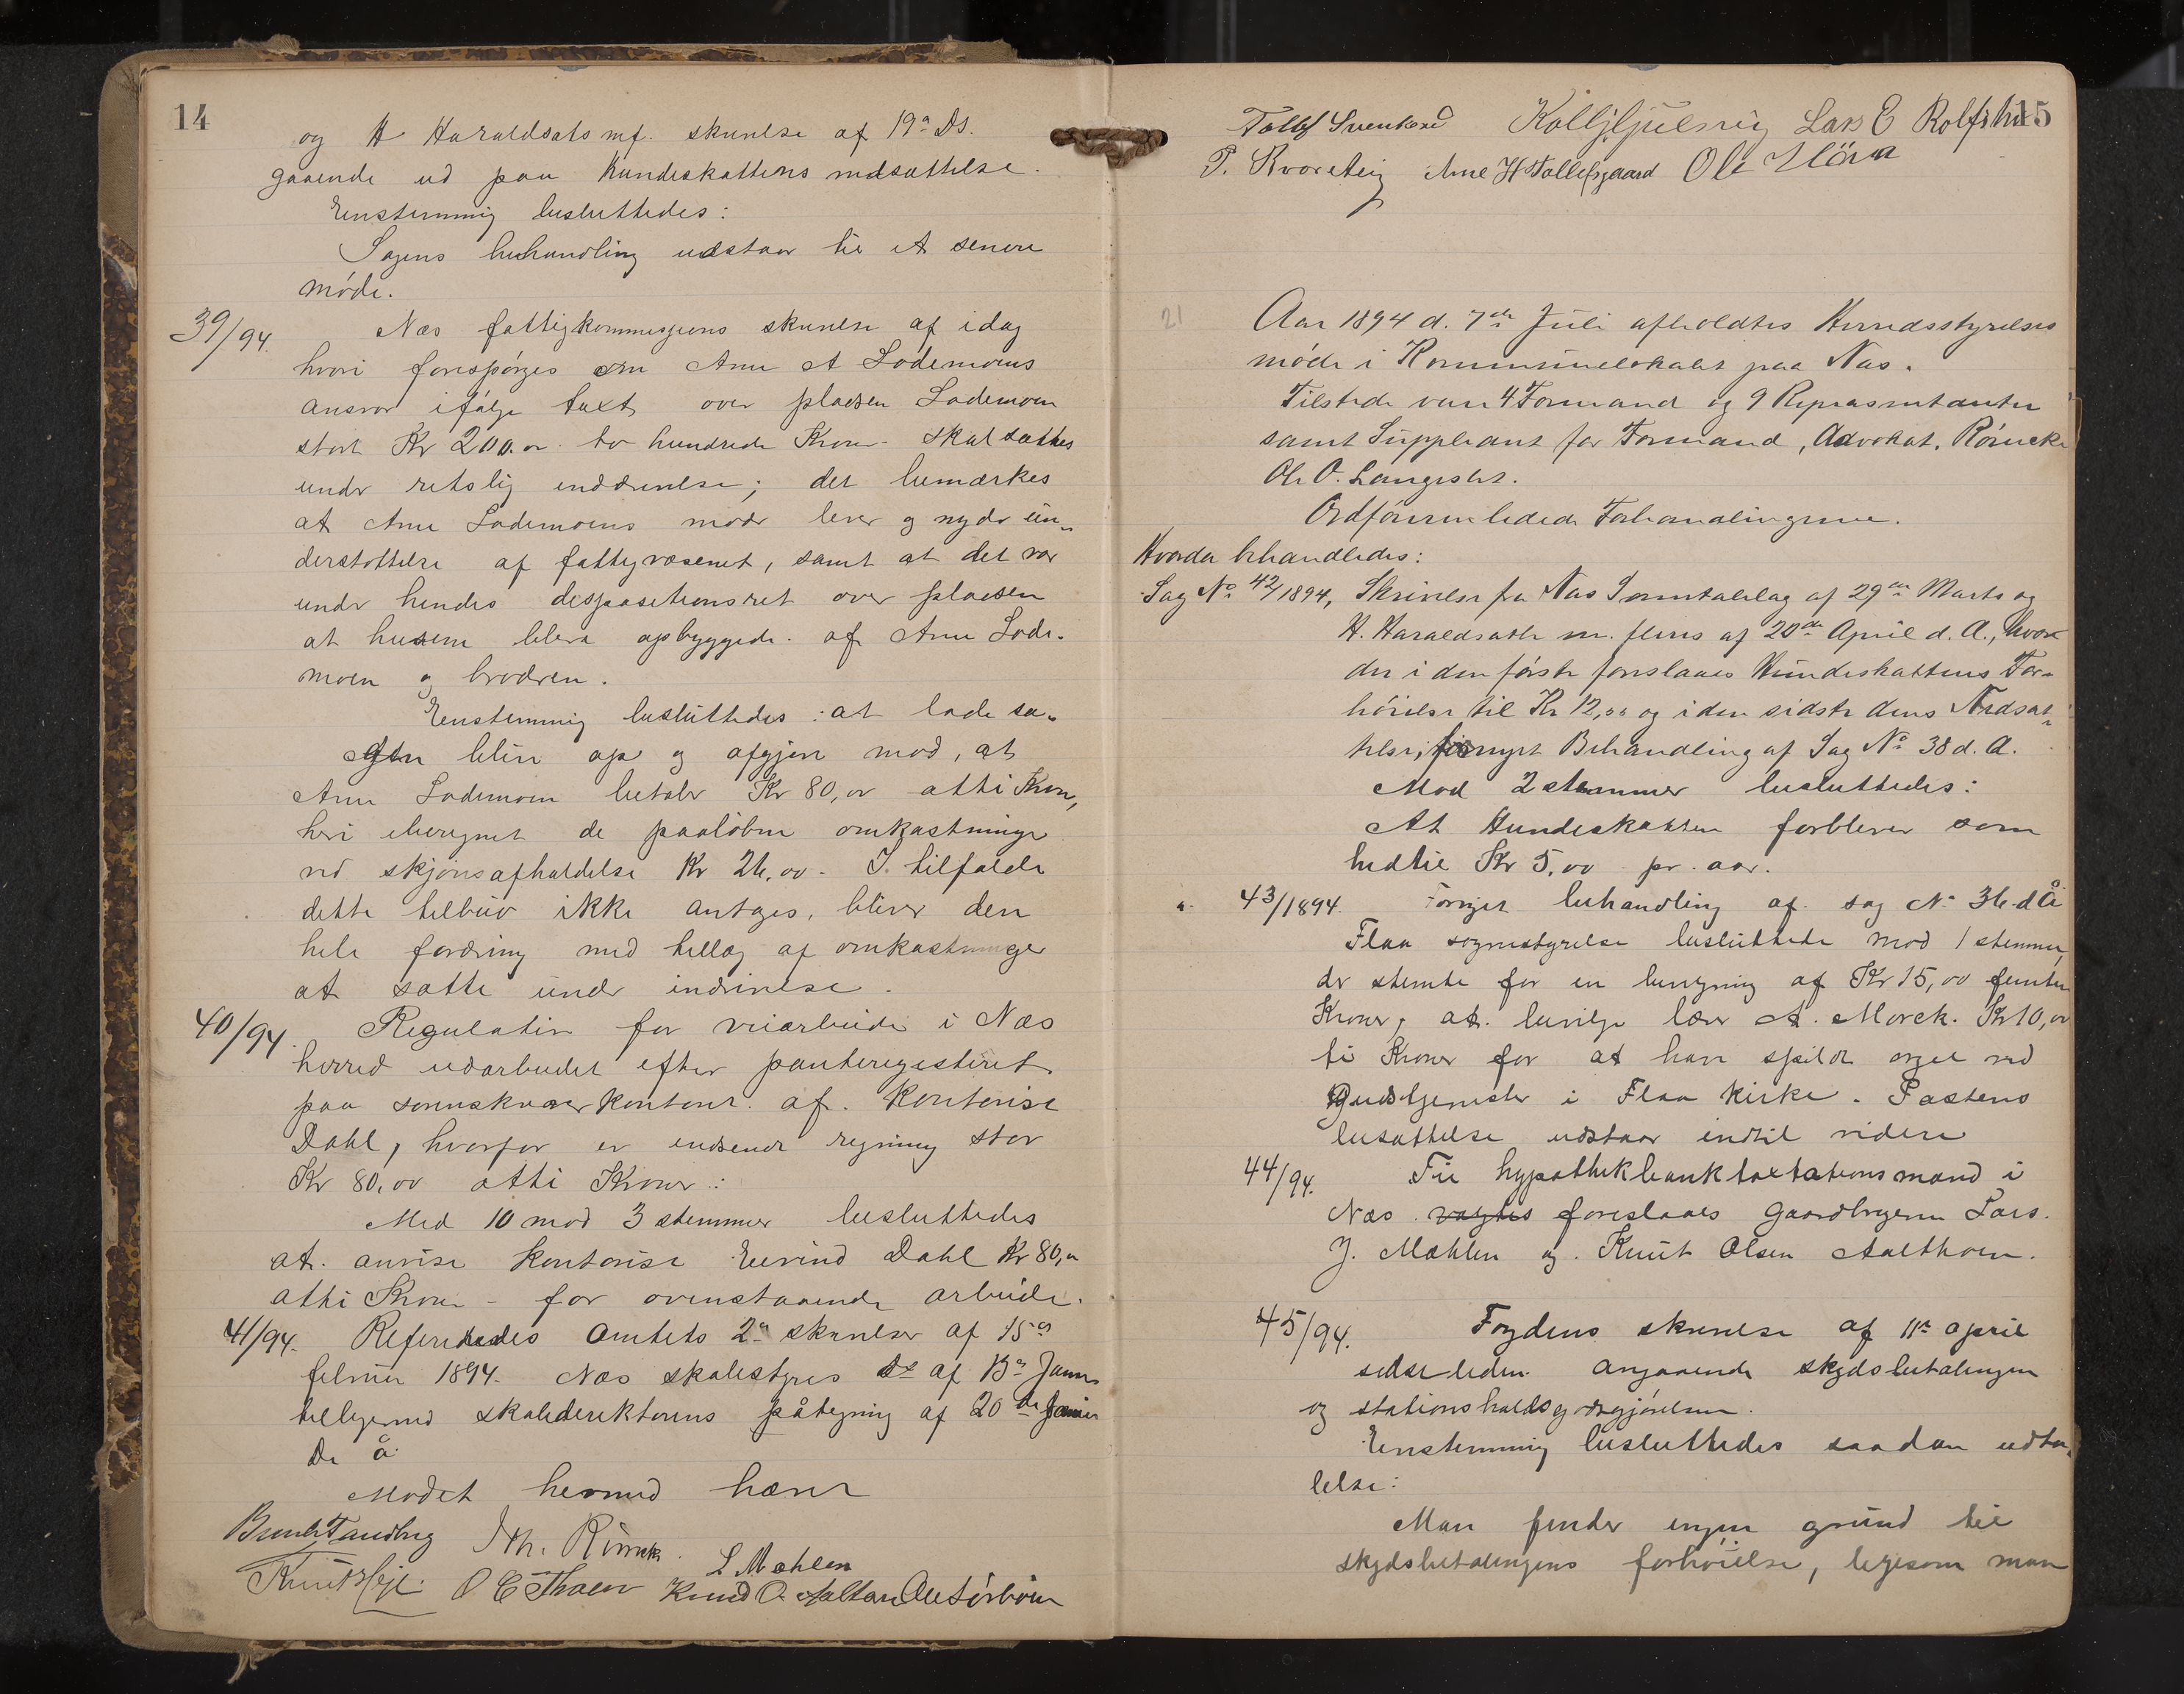 14
og H Haraldsats mf. skrivelse af 19de Ds.
gaaende ud paa Hundeskattens nedsættelse.
Enstemmig besluttedes:
Sagens behandling udstaar til et senere
møde.
39/94. Næs fattigkommissjons skrivelse af idag
hvori forespørges om Arne A Lodemoens
ansvar ifølge taxt over pladsen Lodemoen
stort Kr 200.00 to hundrede Kroner skal sættes
under retslig inddrivelse; det bemærkes
at Arne Lodemoens moder lever og nyder un-
derstøttelse af fattigvæsenet, samt at det var
under hendes desposetionsret over pladsen
at husene bleve opbyggede af Arne Lode-
moen og brodren.
Enstemmig besluttedes: at lade sa-
gen blive op og afgjøre mod, at
Arne Lodemoen betaler Kr 80,00 otti Kroner,
heri iberegnet de paaløbne omkostninger
ved skjønsafholdelse Kr 26,00. I tilfælde
dette tilbud ikke antages, bliver den
hele fordring med tillæg af omkostninger
at sætte under inddrivelse.
40/94. Regulativ for veiarbeide i Næs
herred udarbeidet efter panteregisteret
paa sorenskriverkontoret af Kontorist
Dahl, hvorfor er indsendt regning stor
Kr 80,00 otti Kroner:
Med 10 mod 3 stemmer besluttedes
at anvise Kontorist Eivind Dahl Kr 80,00
otti Kroner - for ovenstaaende arbeide.
41/94. Refereredes Amtets 2de skrivelser af 15de
februar 1894. Næs skolestyres Ds af 13de Januar
tilligemed skoledirektørens påtegning af 20de Januar
Ds å
Mødet hermed hævet
L Mæhlen
O E Thoen Knud O. Aaltan
15
Lars E Rolfshus
Arne H Tollefsgaard Ole
21
Aar 1894 d. 7de Juli afholdtes Herredsstyrelses
møde i Kommunelokalet paa Næs.
Tilstede vare 4 Formænd og 9 Repræsentanter
samt Suppleant for Formand, Advokat Rømcke
Ole O. Langeslet.
Ordføreren ledede Forhandlingerne.
Hvorda behandledes:
Sag No 42/1894, Skrivelse fra Næs Samtalelag af 29de Marts og
H. Haraldsæth m. fleres af 20de April d. A., hvor
der i den første foreslaaes Hundeskattens For-
høielse til Kr 12,00 og i den sidste dens Nedsæt-
telse, fornyet Behandling af Sag No 38 d. A.
Mod 2 stemmer besluttedes:
At Hundeskatten forbliver som
hidtil Kr 5,00 pr. aar.
43/1894. Fornyet behandling af sag No 36 d Å
Flaa sognestyrelse besluttede mod 1 stemme,
der stemte for en bevilgning af Kr 15,00 femten
Kroner, at bevilge lærer A. Morck Kr 10,00
ti Kroner for at have spildt orgel ved
gudstjenester i Flaa Kirke. Postens
besættelse udstaar indtil videre
44/94. Til hypothekbanktaxtationsmænd i
Næs valgtes foreslaaes gaardbrugerne Lars
J. Mæhlen og Knut Olsen Aalthoen.
45/94. Fogdens skrivelse af 11te april
sidstleden angaaende skydsbetalingen
og stationsholdsgodtgjørelsen.
Enstemmig besluttedes saadan udta-
lelse:
Man finder ingen grund til
skydsbetalingens forhøielse, ligesom man